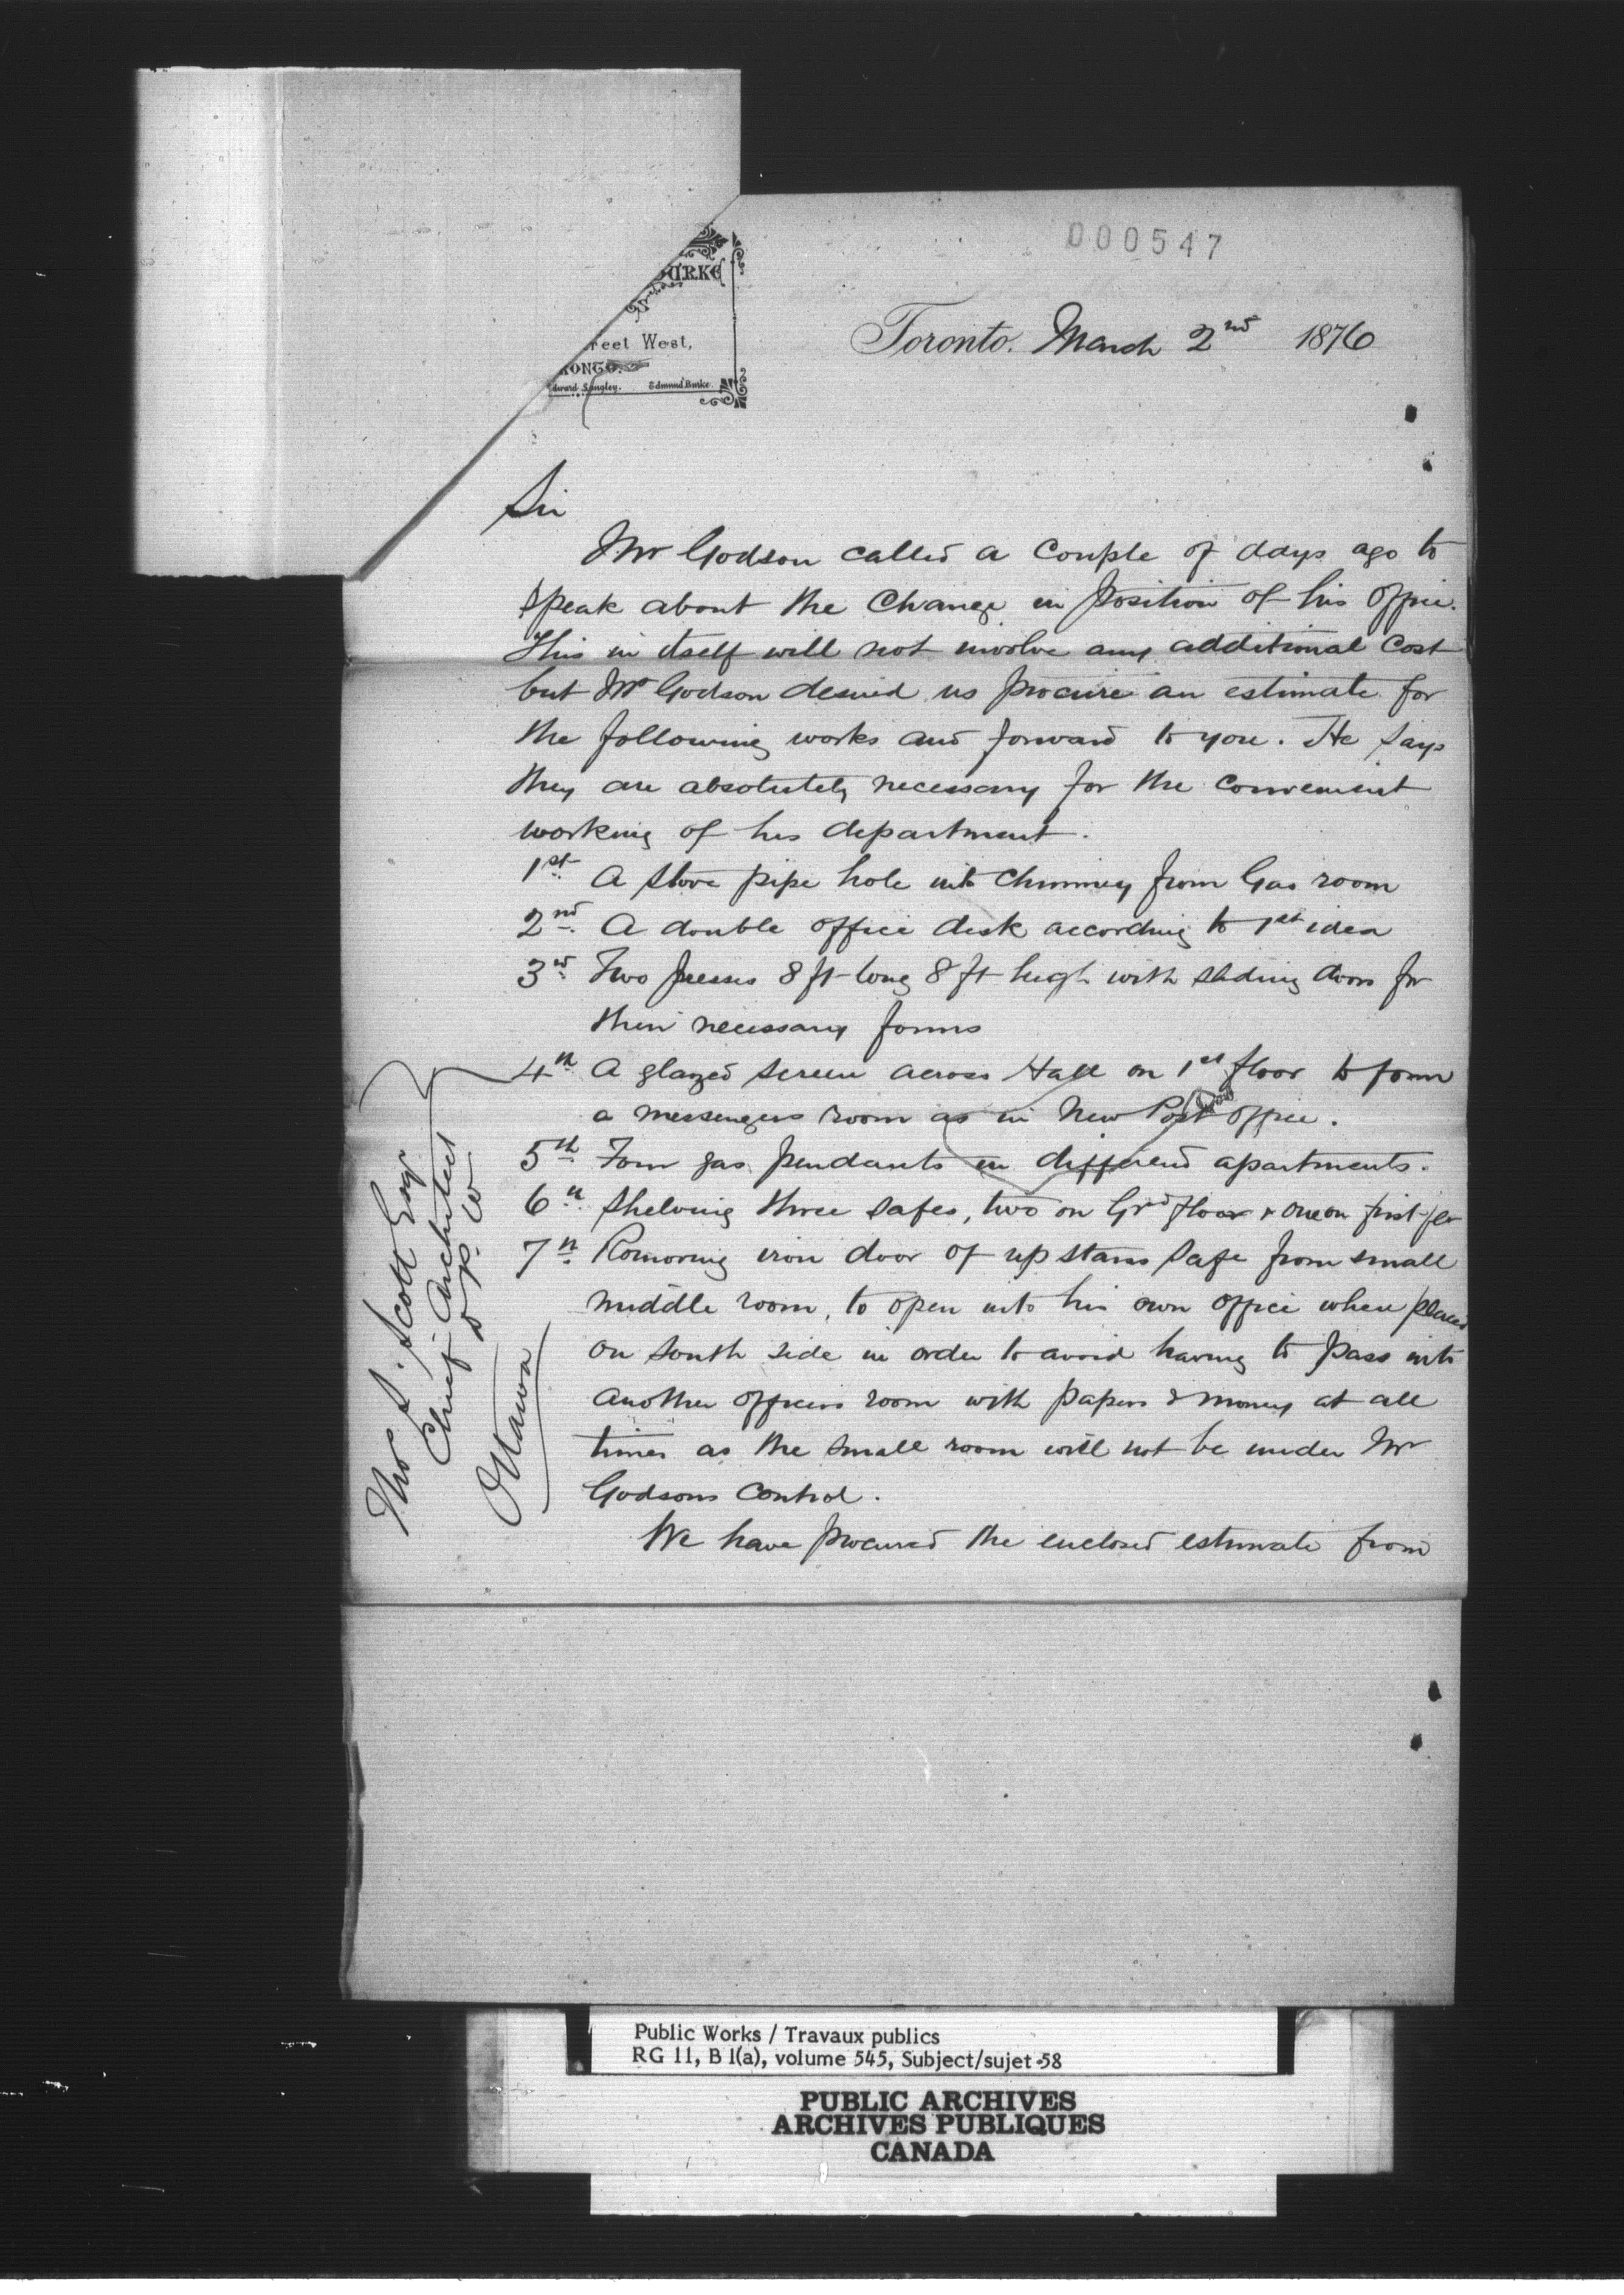 000547
URKE
reet West,
RONTO.
dward Langley. Edmund Burke.
Toronto. March 2nd 1876
Sir
Mr Godson called a couple of days ago to
speak about the Change in position of his Office.
This in itself will not involve any additional cost
but Mr Godson desired us procure an estimate for
the following works and forward to you. He says
they are absolutely necessary for the convenient
working of his department.
1st A stove pipe hole into chimney from Gas room
2nd A double office desk according to 1st idea
3rd Two presses 8 ft long 8 ft high with sliding doors for
their necessary forms
4th A glazed screen across Hall on 1st floor to form
a messengers room as in New Post Office.
5th Four gas pendants in different apartments.
6th Shelving three safes, two on Grd floor & one on first flr
7th Removing iron door of up stairs safe from small
middle room, to open into his own office when placed
on south side in order to avoid having to pass into
another officers room with papers & money at all
times as the small room will not be under Mr
Godsons control.
We have procured the enclosed estimate from
Thos S. Scott Esq
Chief Architect
D P. W
Ottawa
Public Works / Travaux publics
RG 11, B 1(a), volume 545, Subject/sujet 58
PUBLIC ARCHIVES
ARCHIVES PUBLIQUES
CANADA